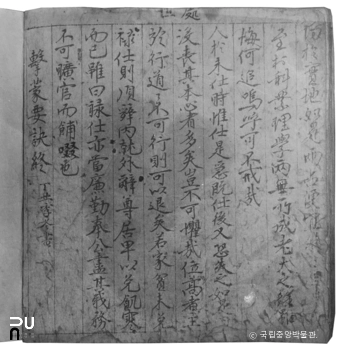 至於科業理學兩無所成老大之後雖
悔何追嗚呼可不戒哉
人於未仕時惟仕是急旣仕後又恐失之如是
沒喪其本心者多矣豈不可懼哉位高者主
於行道道不可行則可以退矣若家貧未免
祿仕則須辭內就外辭尊居卑以免飢寒
而已雖曰祿仕亦當廉勤奉公盡其職務
不可曠官而餔啜也
擊蒙要訣終
© 국립중앙박물관